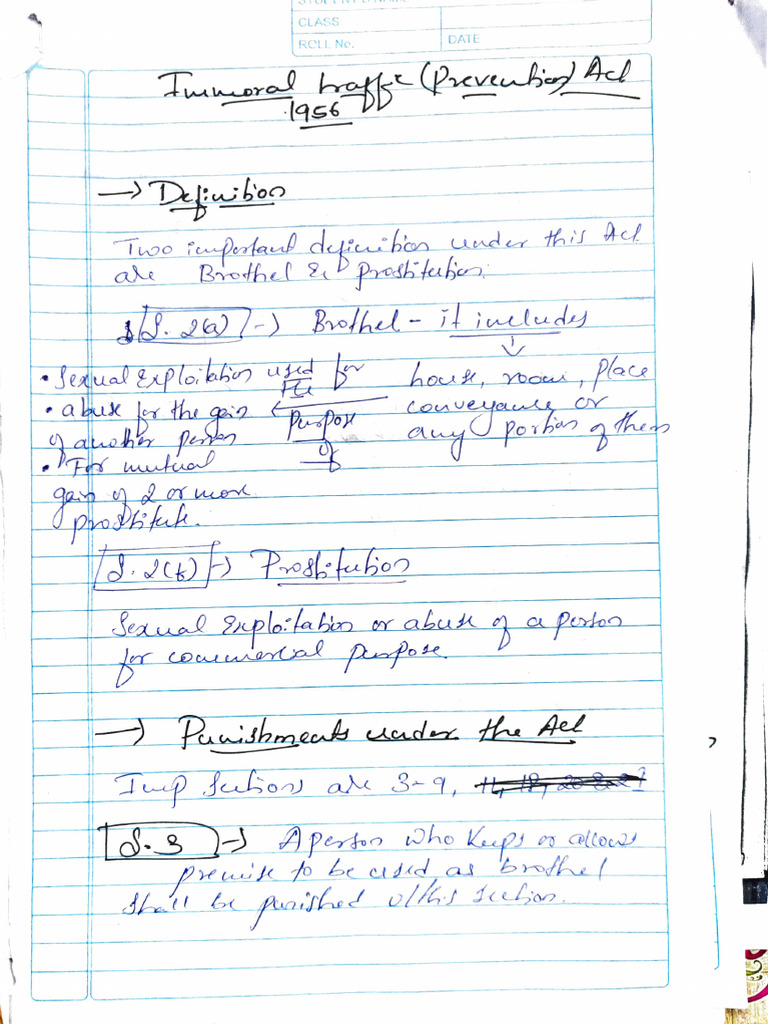 STUDENT'S NAME
CLASS
ROLL No.
DATE
Immoral traffic (Prevention) Act
1956
→ Definition
Two important definition under this Act
are Brothel & prostitution.
S. 2(a) → Brothel - it includes
house, room, place
conveyance or
any portion of them
used for
the
purpose
of
• Sexual Exploitation
• abuse for the gain
of another person
• For mutual
gain of 2 or more
prostitute.
S. 2(f) → Prostitution
Sexual Exploitation or abuse of a person
for commercial purpose.
→ Punishments under the Act
Imp Sections are 3-9,
S. 3 → A person who keeps or allows
premise to be used as brothel
shall be punished u/this section.